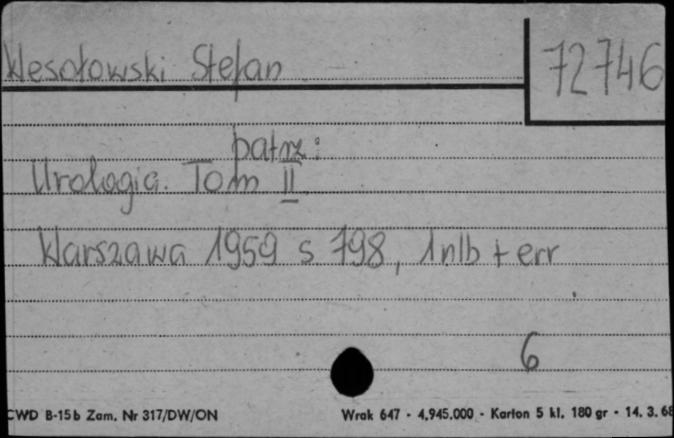 Wesołowski Stefan
72746
patrz:
Urologia. Tom II
Warszawa 1959 s 798, 1nlb + err
6
CWD B-15b Zam. Nr 317/DW/ON
Wrak 647 - 4.945.000 - Karton 5 kl. 180 gr - 14. 3. 68